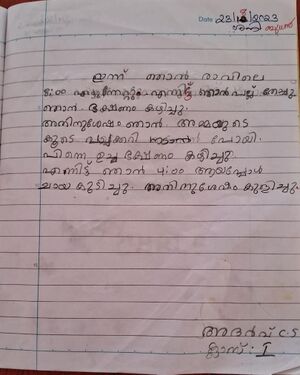 Date 23/12/2023
ഇന്ന് ഞാൻ രാവിലെ
8:00 എഴുന്നേറ്റു എന്നിട്ട് ഞാൻ പല്ല് തേച്ചു
ഞാൻ ഭക്ഷണം കഴിച്ചു.
അതിനുശേഷം ഞാൻ അമ്മയുടെ
കൂടെ പോയി.
പിന്നെ ഉച്ച ഭക്ഷണം കഴിച്ചു
എന്നിട്ട് ഞാൻ 4:00 ആയപ്പോൾ
ചായ കുടിച്ചു. അതിനുശേഷം കുളിച്ചു.
അദർവ് C.S
ക്ലാസ്: I